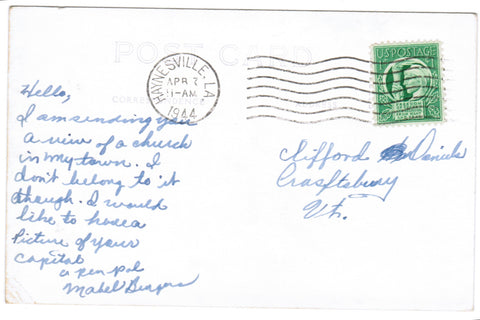 POST CARD
CORRESPONDENCE
HAYNESVILLE, LA.
APR 3
1944
U.S. POSTAGE
Hello,
I am sending you
a view of a church
in my town. I
don't belong to it
though. I would
like to have a
Picture of your
capital
a pen pal
Mabel
Clifford McDaniels
Craftsbury
Vt.